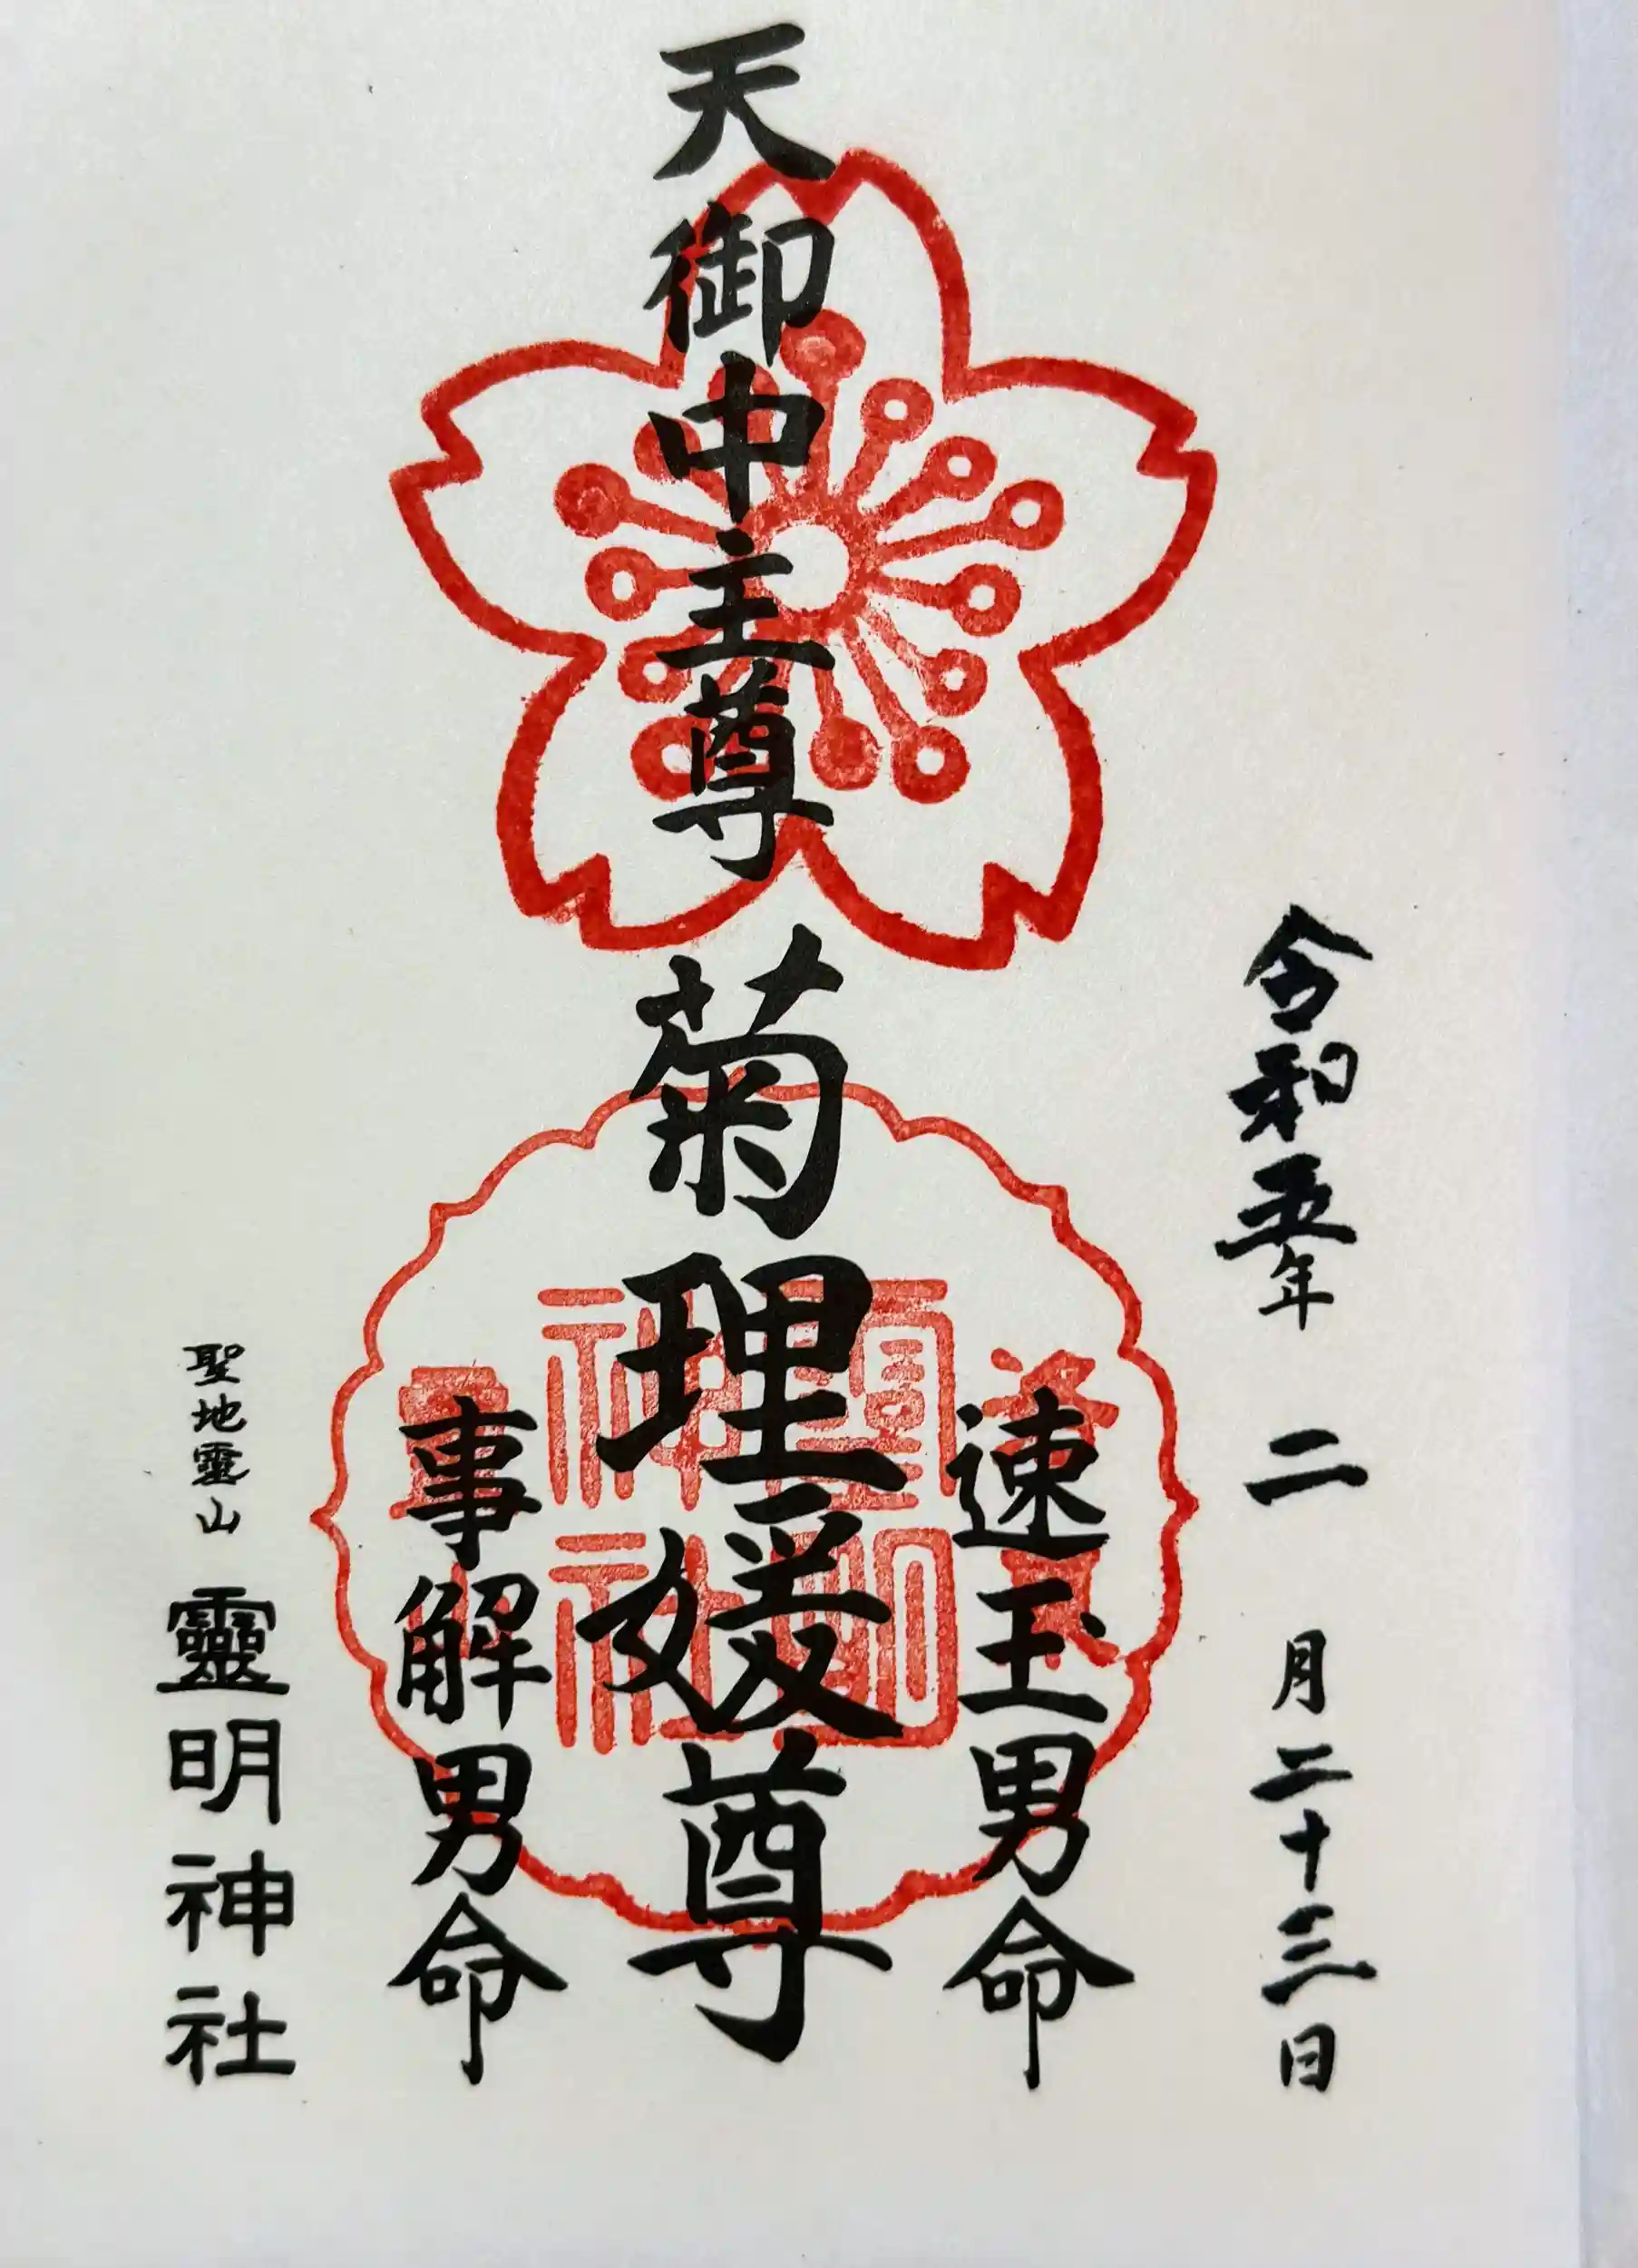 令和五年 二月二十三日
速玉男命
天御中主尊
菊理媛尊
事解男命
聖地靈山 靈明神社